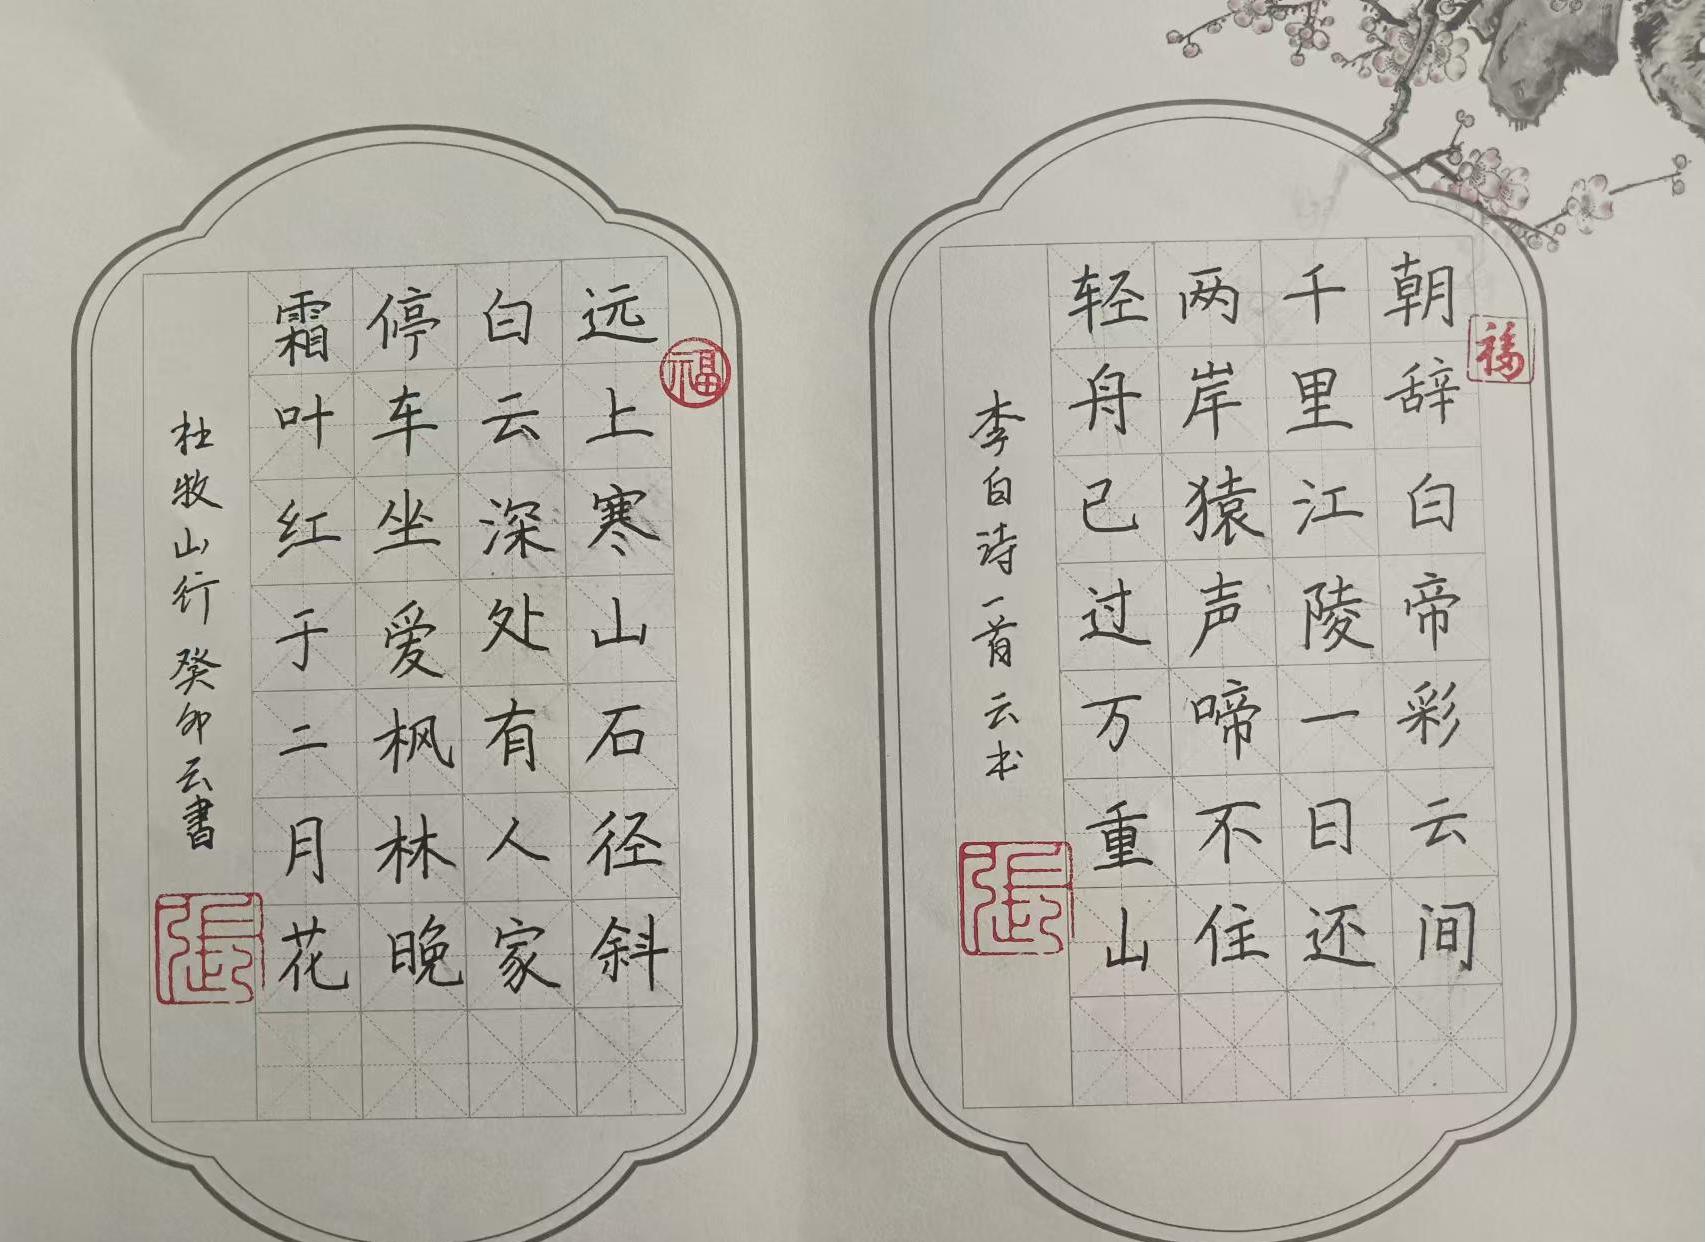 朝辞白帝彩云间
福
千里江陵一日还
两岸猿声啼不住
轻舟已过万重山
李白诗一首 云书
張
远上寒山石径斜
福
白云深处有人家
停车坐爱枫林晚
霜叶红于二月花
杜牧山行 癸卯云書
張